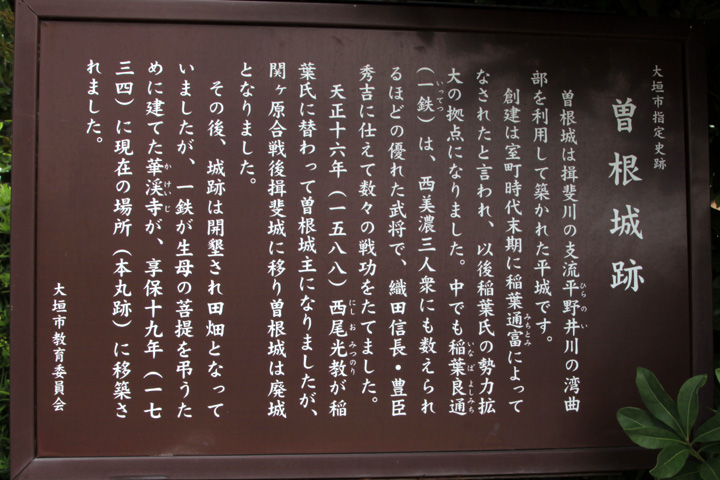 大垣市指定史跡
曽根城跡
曽根城は揖斐川の支流平野井川の湾曲
ひらのい
部を利用して築かれた平城です。
創建は室町時代末期に稲葉通富によって
みちとみ
なされたと言われ、以後稲葉氏の勢力拡
大の拠点になりました。中でも稲葉良通
いなばよしみち
(一鉄)は、西美濃三人衆にも数えられ
いってつ
るほどの優れた武将で、織田信長・豊臣
秀吉に仕えて数々の戦功をたてました。
天正十六年(一五八八)西尾光教が稲
にしおみつのり
葉氏に替わって曽根城主になりましたが、
関ヶ原合戦後揖斐城に移り曽根城は廃城
となりました。
その後、城跡は開墾され田畑となって
いましたが、一鉄が生母の菩提を弔うた
めに建てた華渓寺が、享保十九年(一七
かけいじ
三四)に現在の場所(本丸跡)に移築さ
れました。
大垣市教育委員会